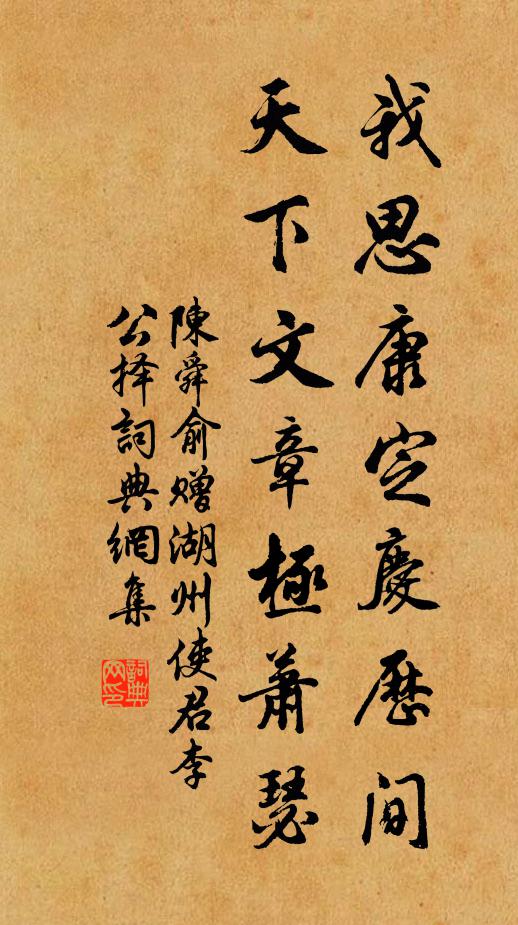 我思康定慶歷間
天下文章極蕭瑟
陳舜俞贈湖州使君李
公择詞典網集
詞典网印